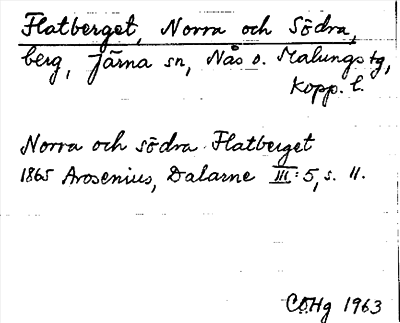 Flatberget, Norra och Södra,
berg, Järna sn, Nås o. Malungs tg,
Kopp. l.
Norra och södra Flatberget
1865 Arosenius, Dalarne III:5, s. 11.
COHg 1963